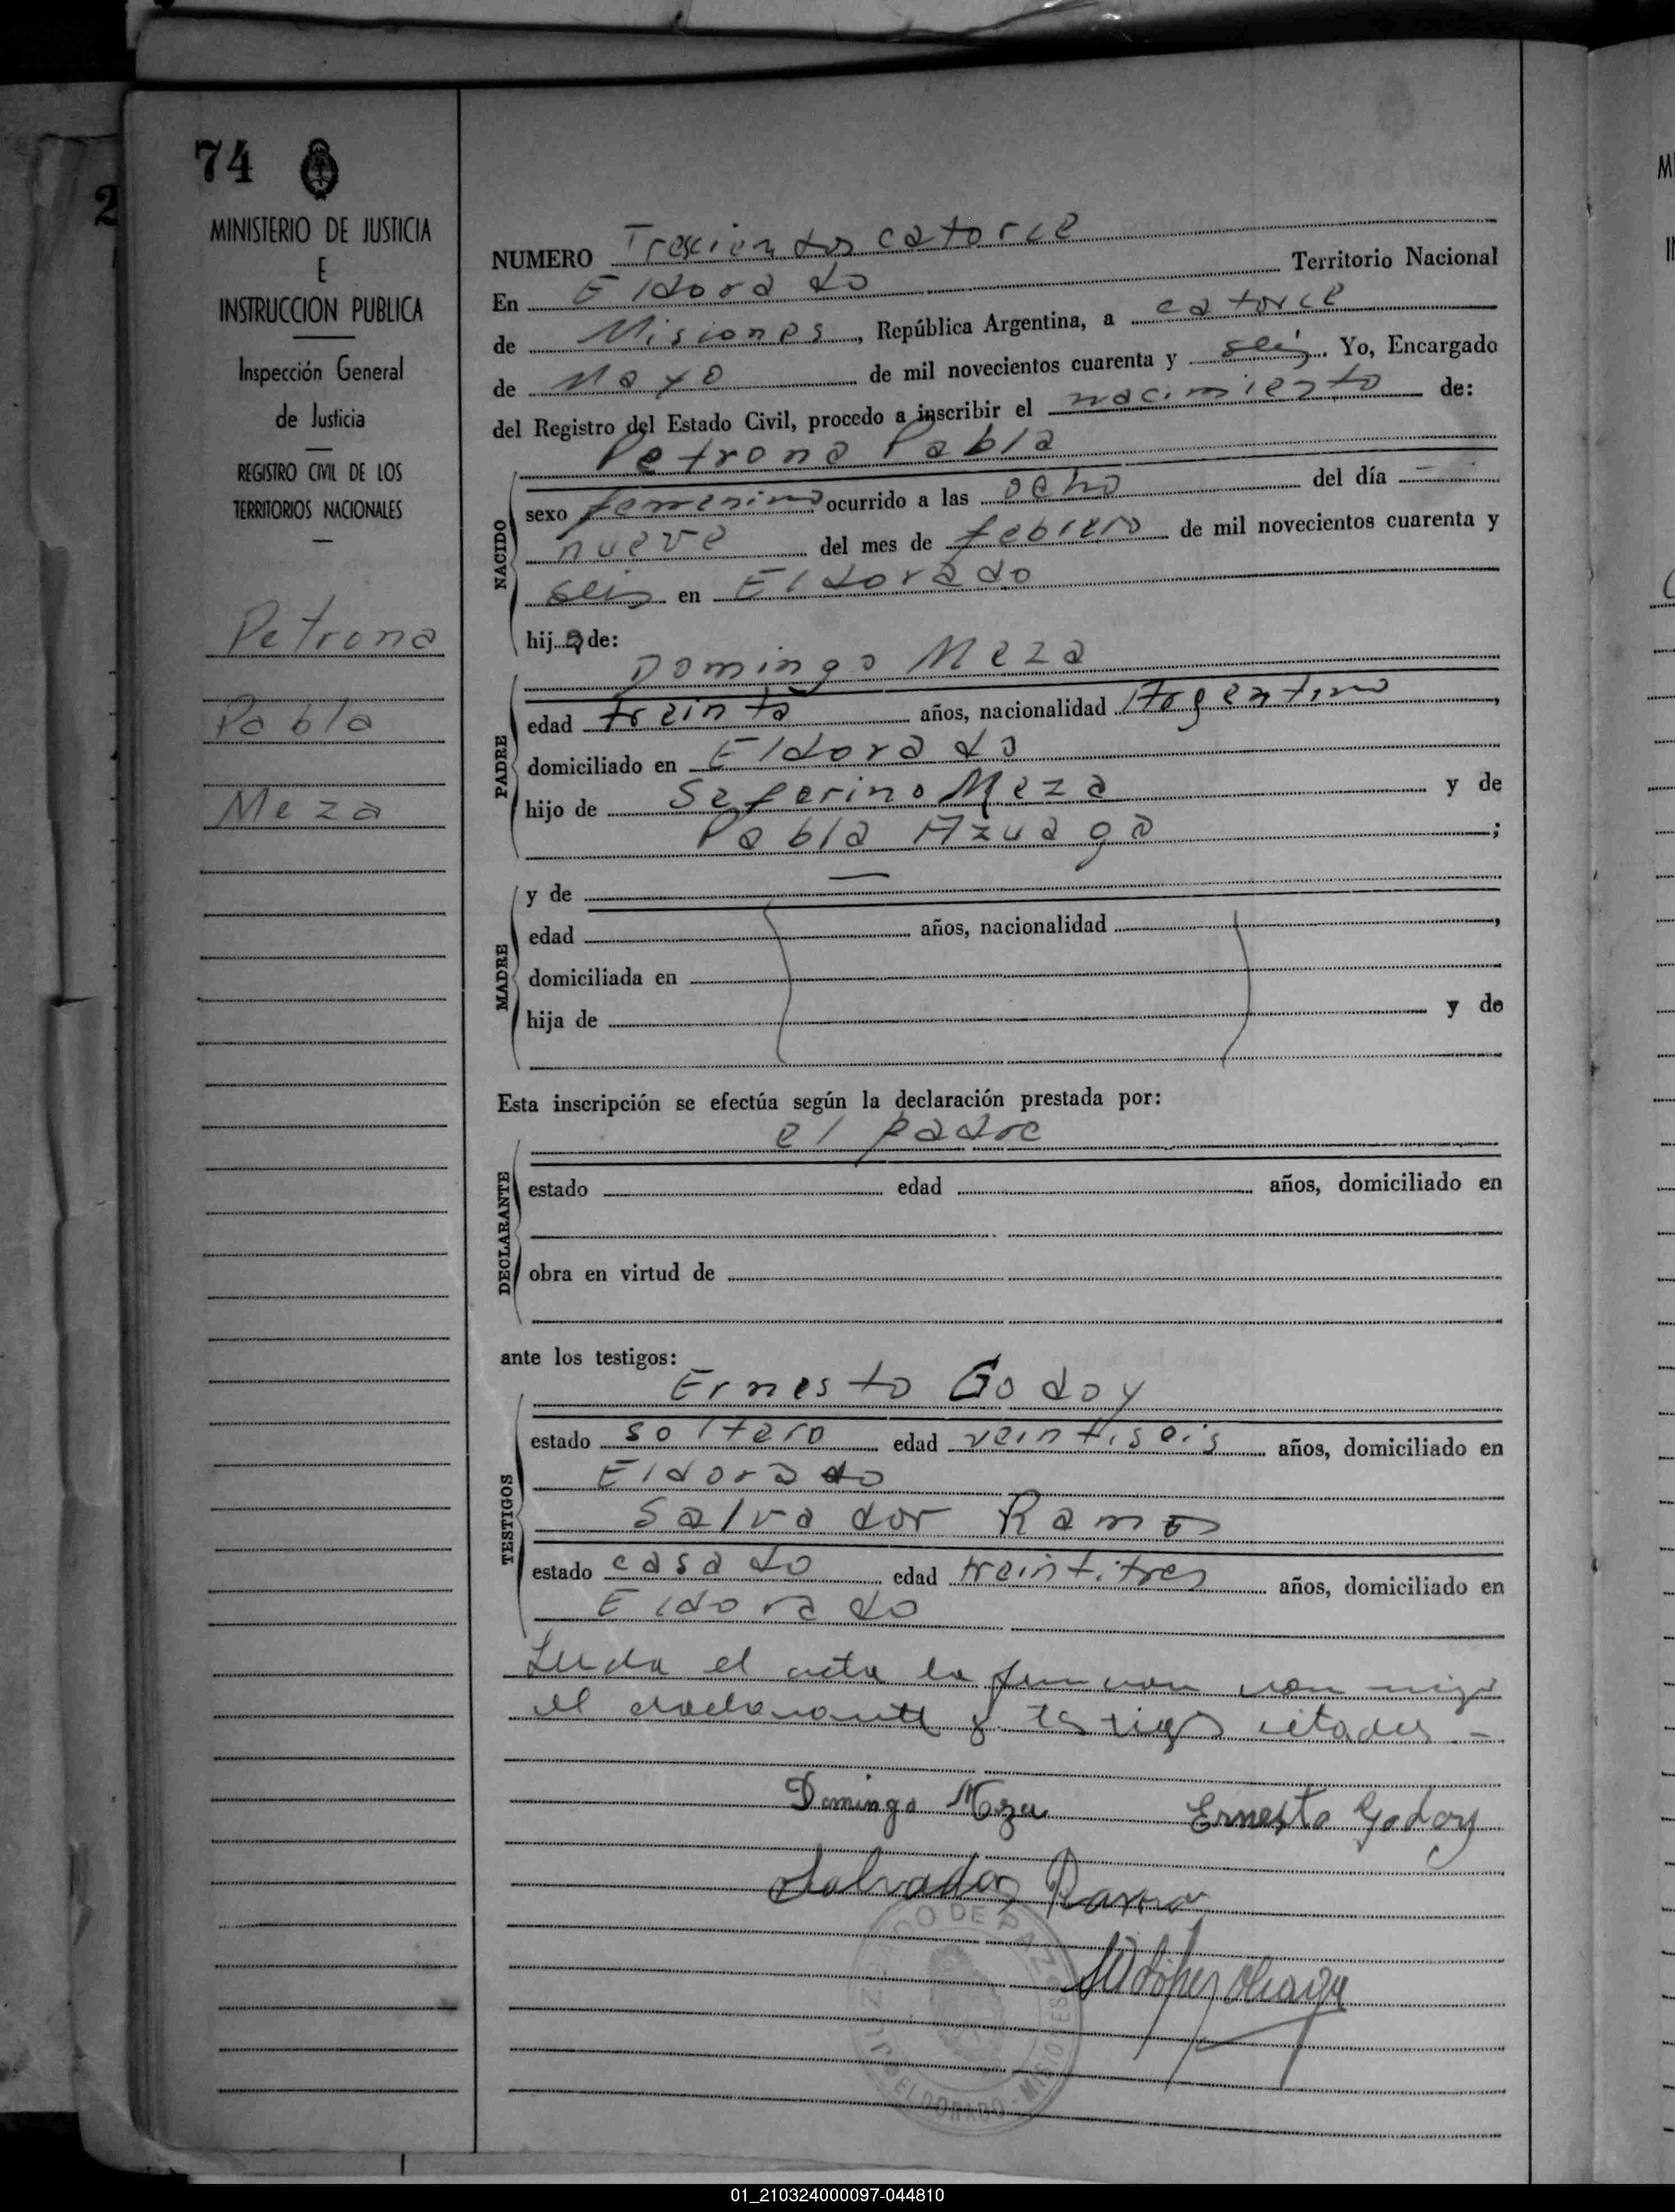 74
MINISTERIO DE JUSTICIA
E
INSTRUCCION PUBLICA
Inspección General
de Justicia
REGISTRO CIVIL DE LOS
TERRITORIOS NACIONALES
Petrona
Pabla
Meza
NUMERO Trescientos catorce
En Eldorado Territorio Nacional
de Misiones, República Argentina, a catorce
de Mayo de mil novecientos cuarenta y seis. Yo, Encargado
del Registro del Estado Civil, procedo a inscribir el nacimiento de:
Petrona Pabla
NACIDO
sexo femenino ocurrido a las ocho del día
nueve del mes de febrero de mil novecientos cuarenta y
seis en Eldorado
hija de:
Domingo Meza
PADRE
edad treinta años, nacionalidad Argentino,
domiciliado en Eldorado
hijo de Seferino Meza y de
Pabla Azuaga;
MADRE
y de —
edad años, nacionalidad ,
domiciliada en
hija de y de
Esta inscripción se efectúa según la declaración prestada por:
el padre
DECLARANTE
estado edad años, domiciliado en
obra en virtud de
ante los testigos:
Ernesto Godoy
TESTIGOS
estado soltero edad veintiseis años, domiciliado en
Eldorado
Salvador Ramos
estado casado edad treintitres años, domiciliado en
Eldorado
Leida el acta la firman conmigo
el declarante y testigos citados -
Domingo Meza Ernesto Godoy
Salvador Ramos
JUZGADO DE PAZ
ELDORADO - MISIONES
01_210324000097-044810